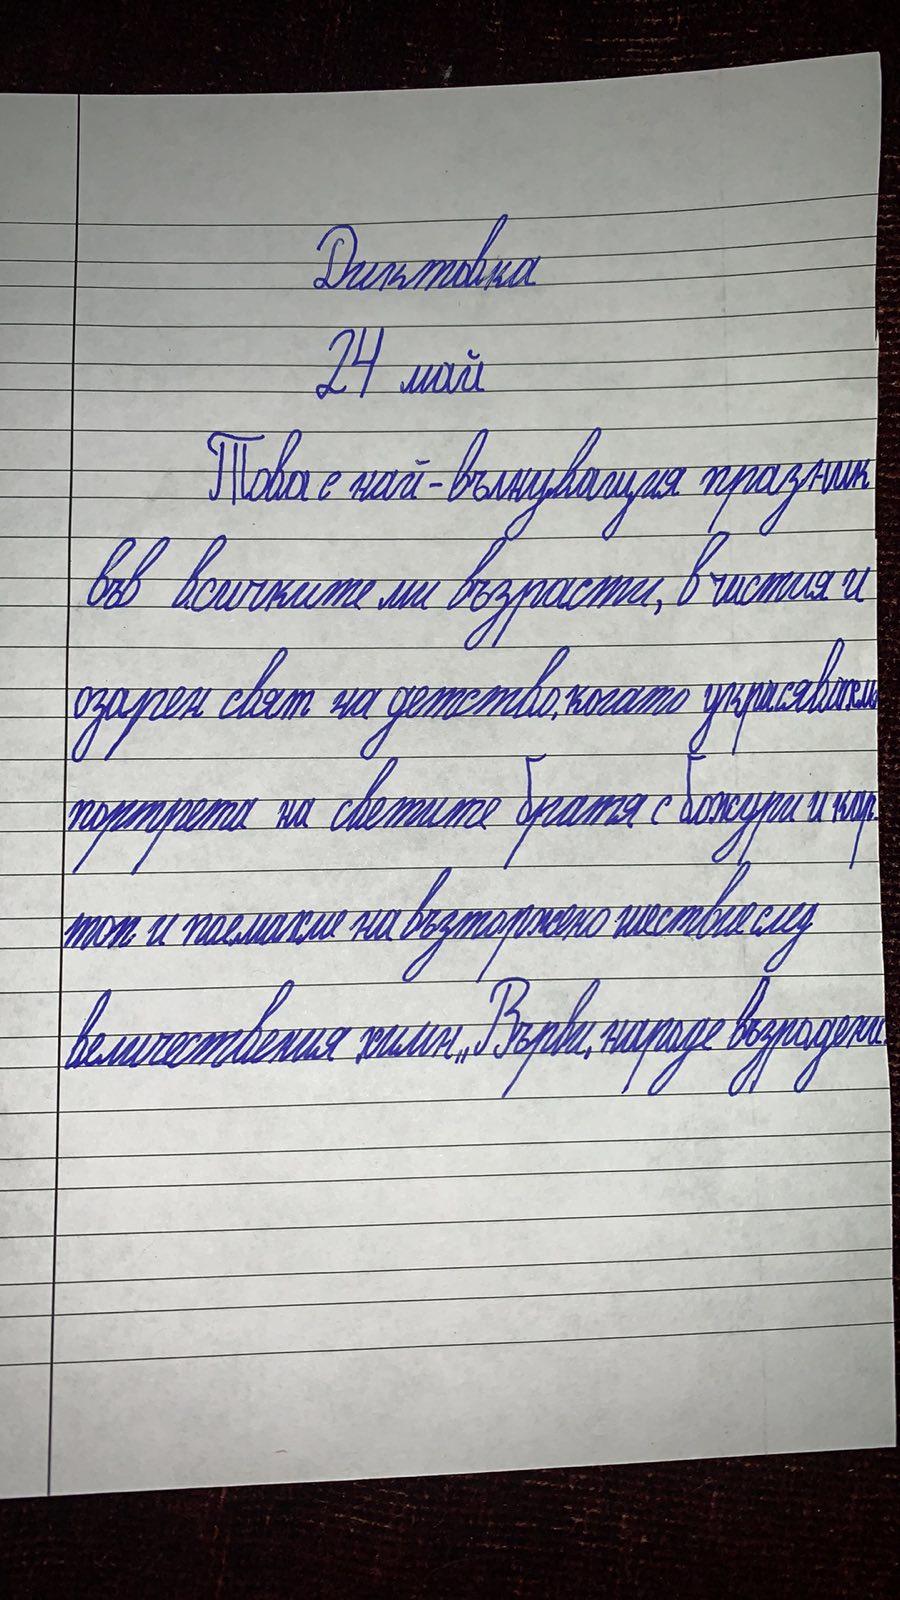 Диктовка
24 май
Това е най-вълнуващия празник
във всичките ми възрасти, в чистия и
озарен свят на детство, когато украсявахме
портрета на светите братя с божури и кар-
тон и поемахме на възторжено шествие след
величествения химн „Върви, народе възродени.